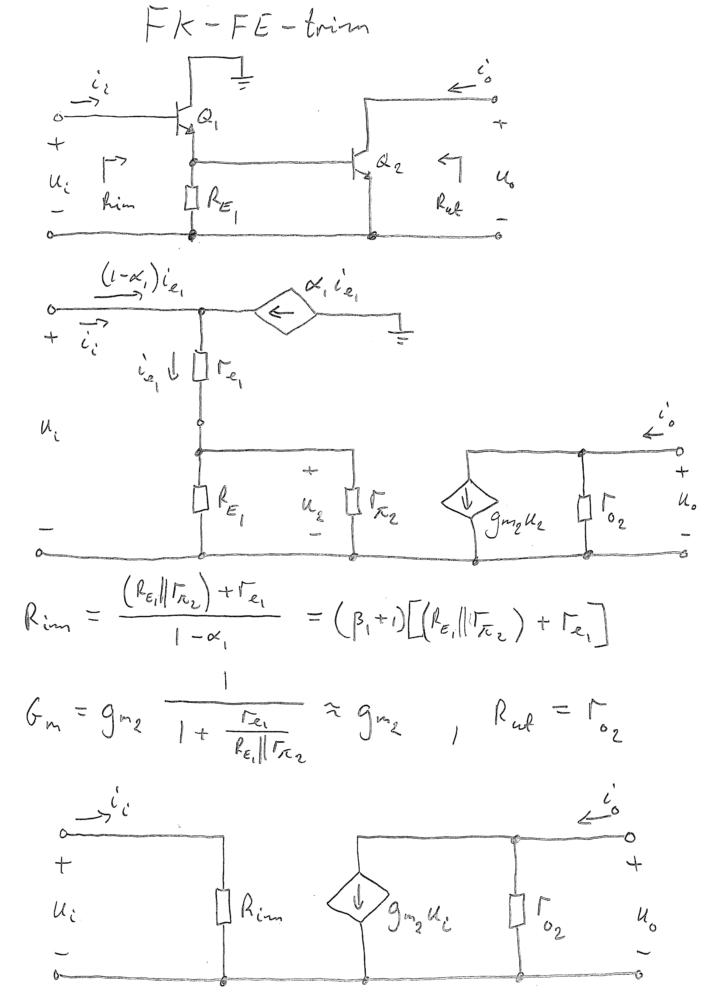 FK-FE-trinn
i_i
i_o
Q_1
+
+
Q_2
u_i
R_inn
R_E1
R_ut
u_o
-
-
(1-α_1)i_e1
α_1 i_e1
+
i_i
i_e1
r_e1
i_o
u_i
+
+
R_E1
u_2
r_π2
g_m2 u_2
r_o2
u_o
-
-
-
R_inn = ((R_E1||r_π2)+r_e1)/(1-α_1) = (β_1+1)[(R_E1||r_π2)+r_e1]
G_m = g_m2 1/(1+r_e1/(R_E1||r_π2)) ≈ g_m2 , R_ut = r_o2
i_i
i_o
+
+
u_i
R_inn
g_m2 u_i
r_o2
u_o
-
-